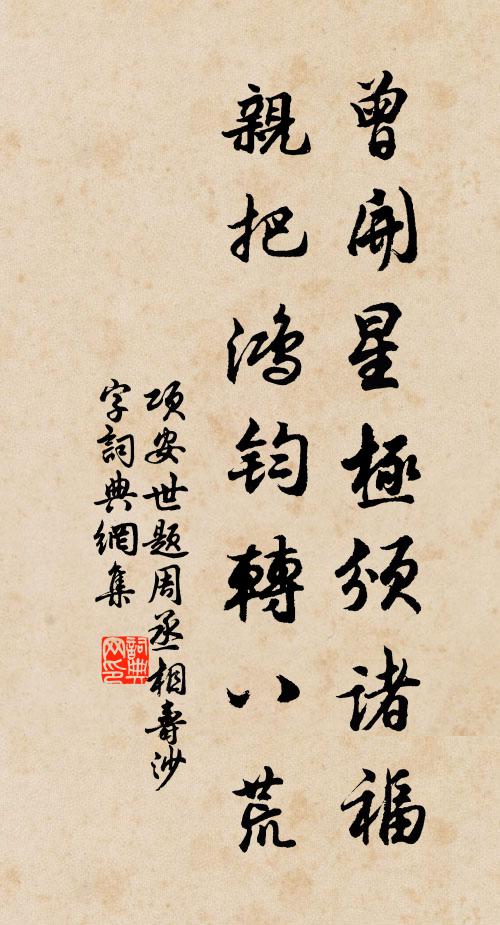 曾開星極頒諸福
親把鴻鈞轉八荒
項安世題周丞相壽沙
字詞典網集
詞典
网印